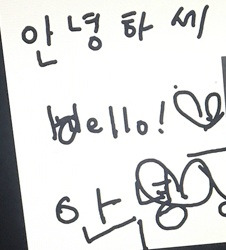 안녕하세
Hello!